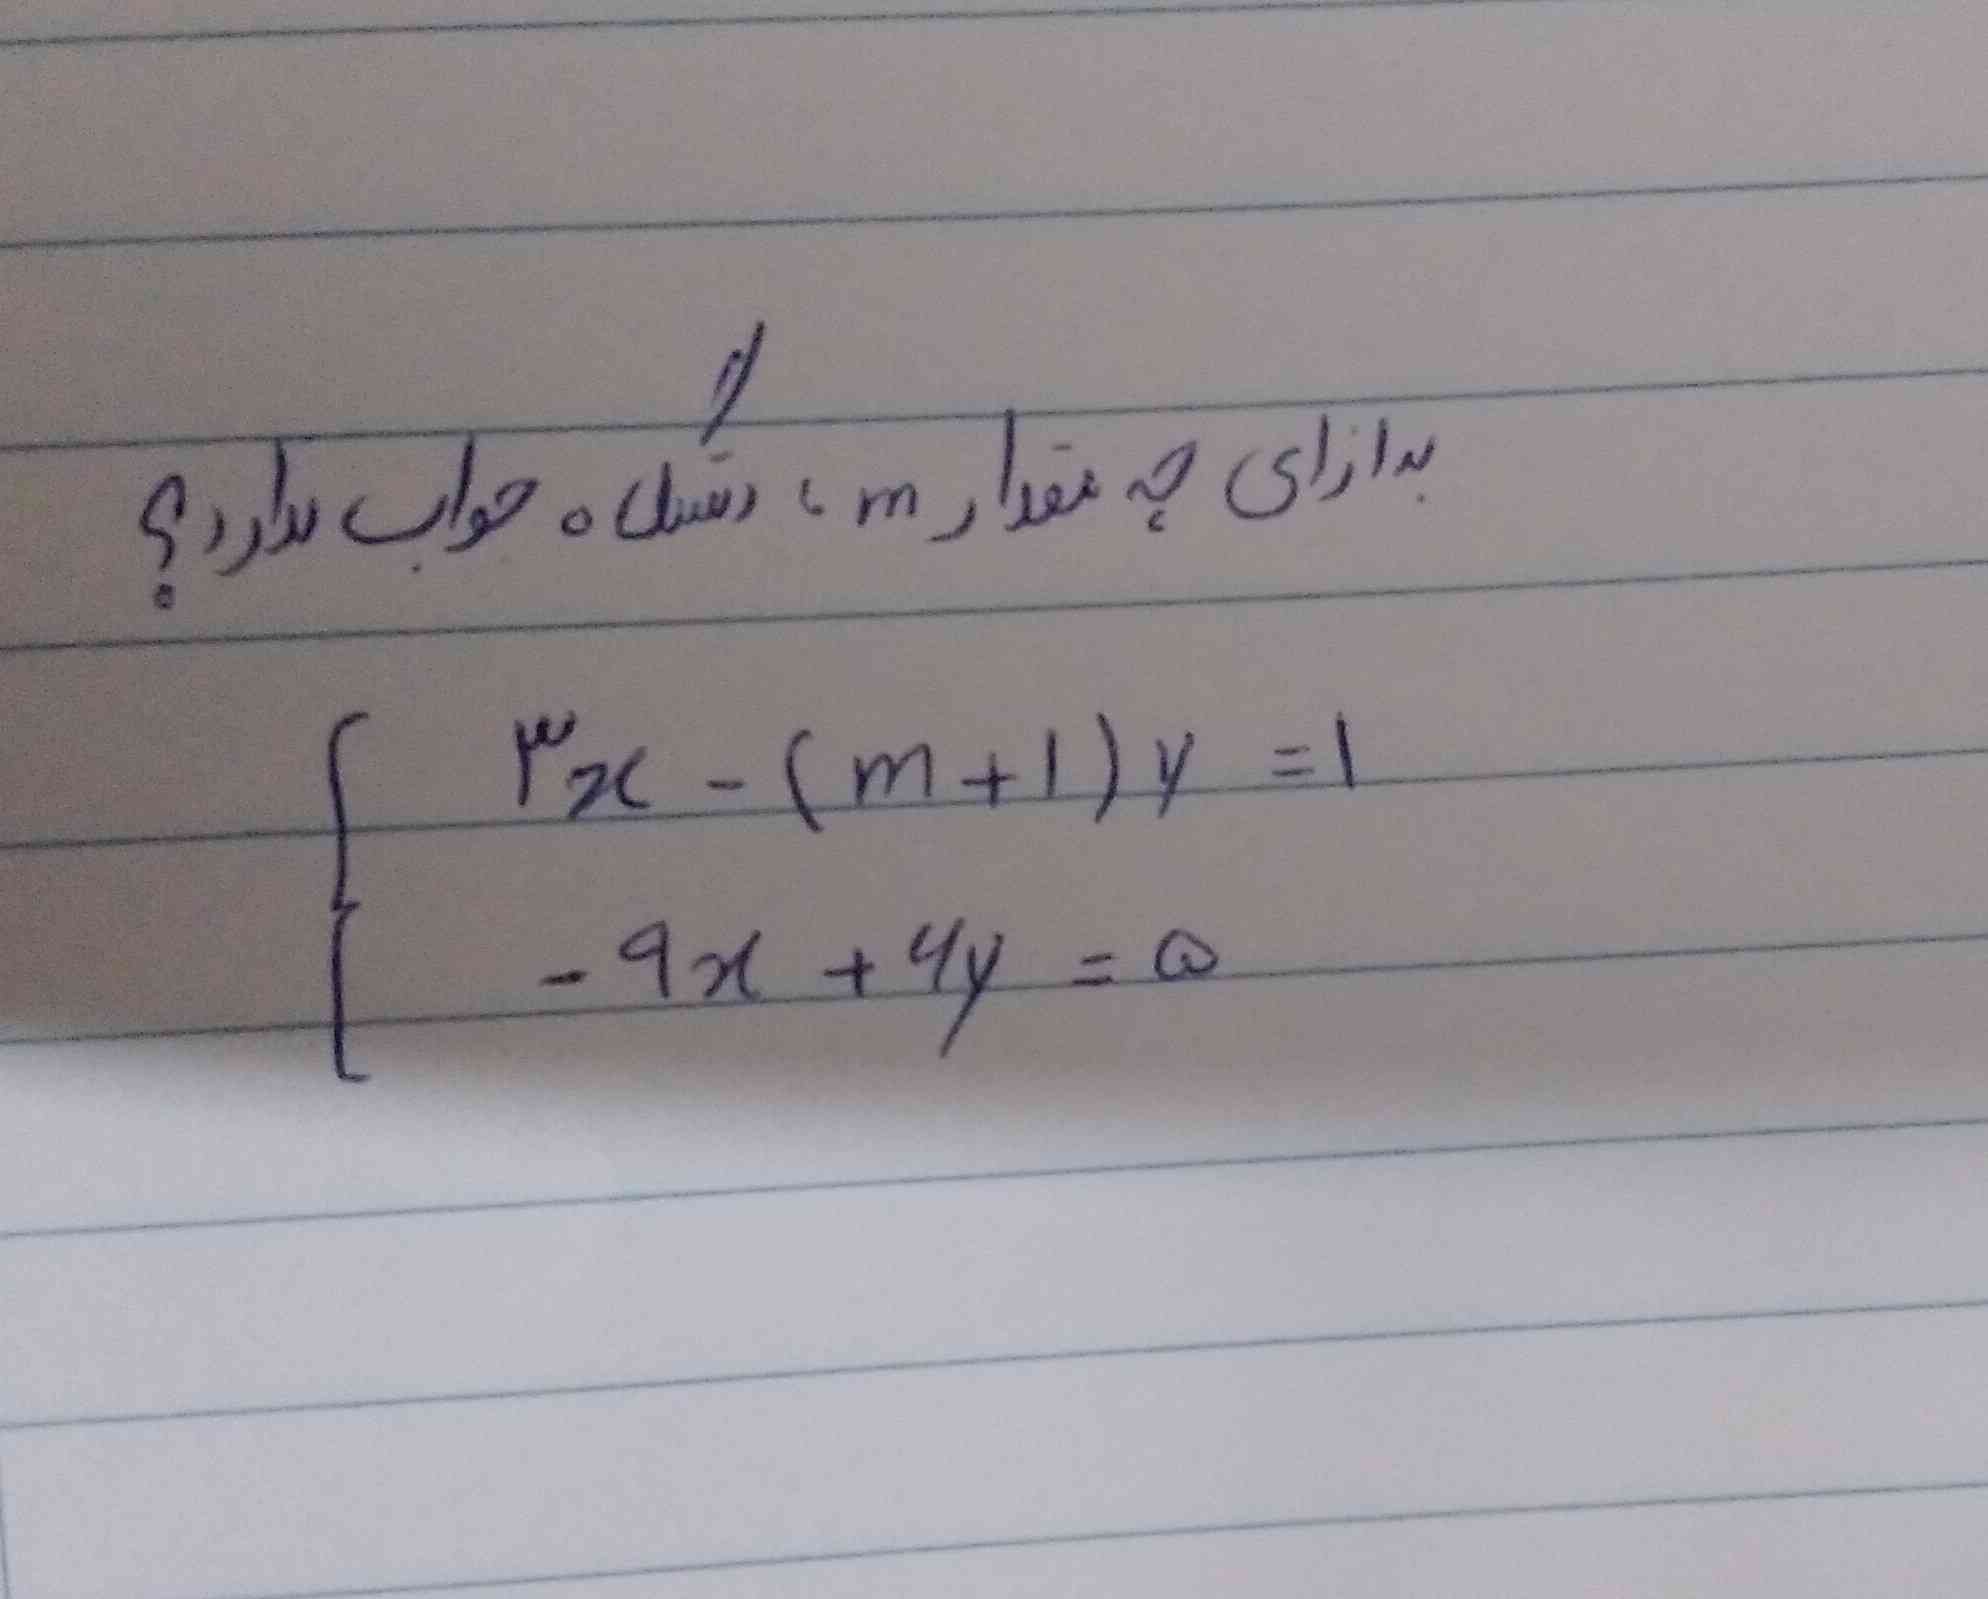 بە ازای چه مقدار m، دستگاه جواب ندارد؟
۳x - (m+۱)y = ۱
-۹x + ۶y = ۵